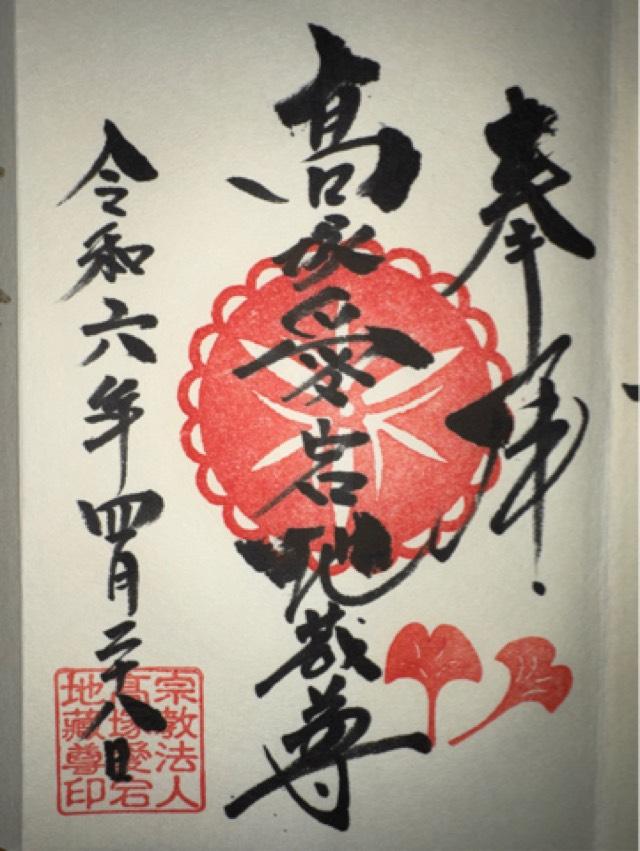 奉拝
高塚愛宕地蔵尊
令和六年四月二十八日
宗教法人
高塚愛宕
地藏尊印